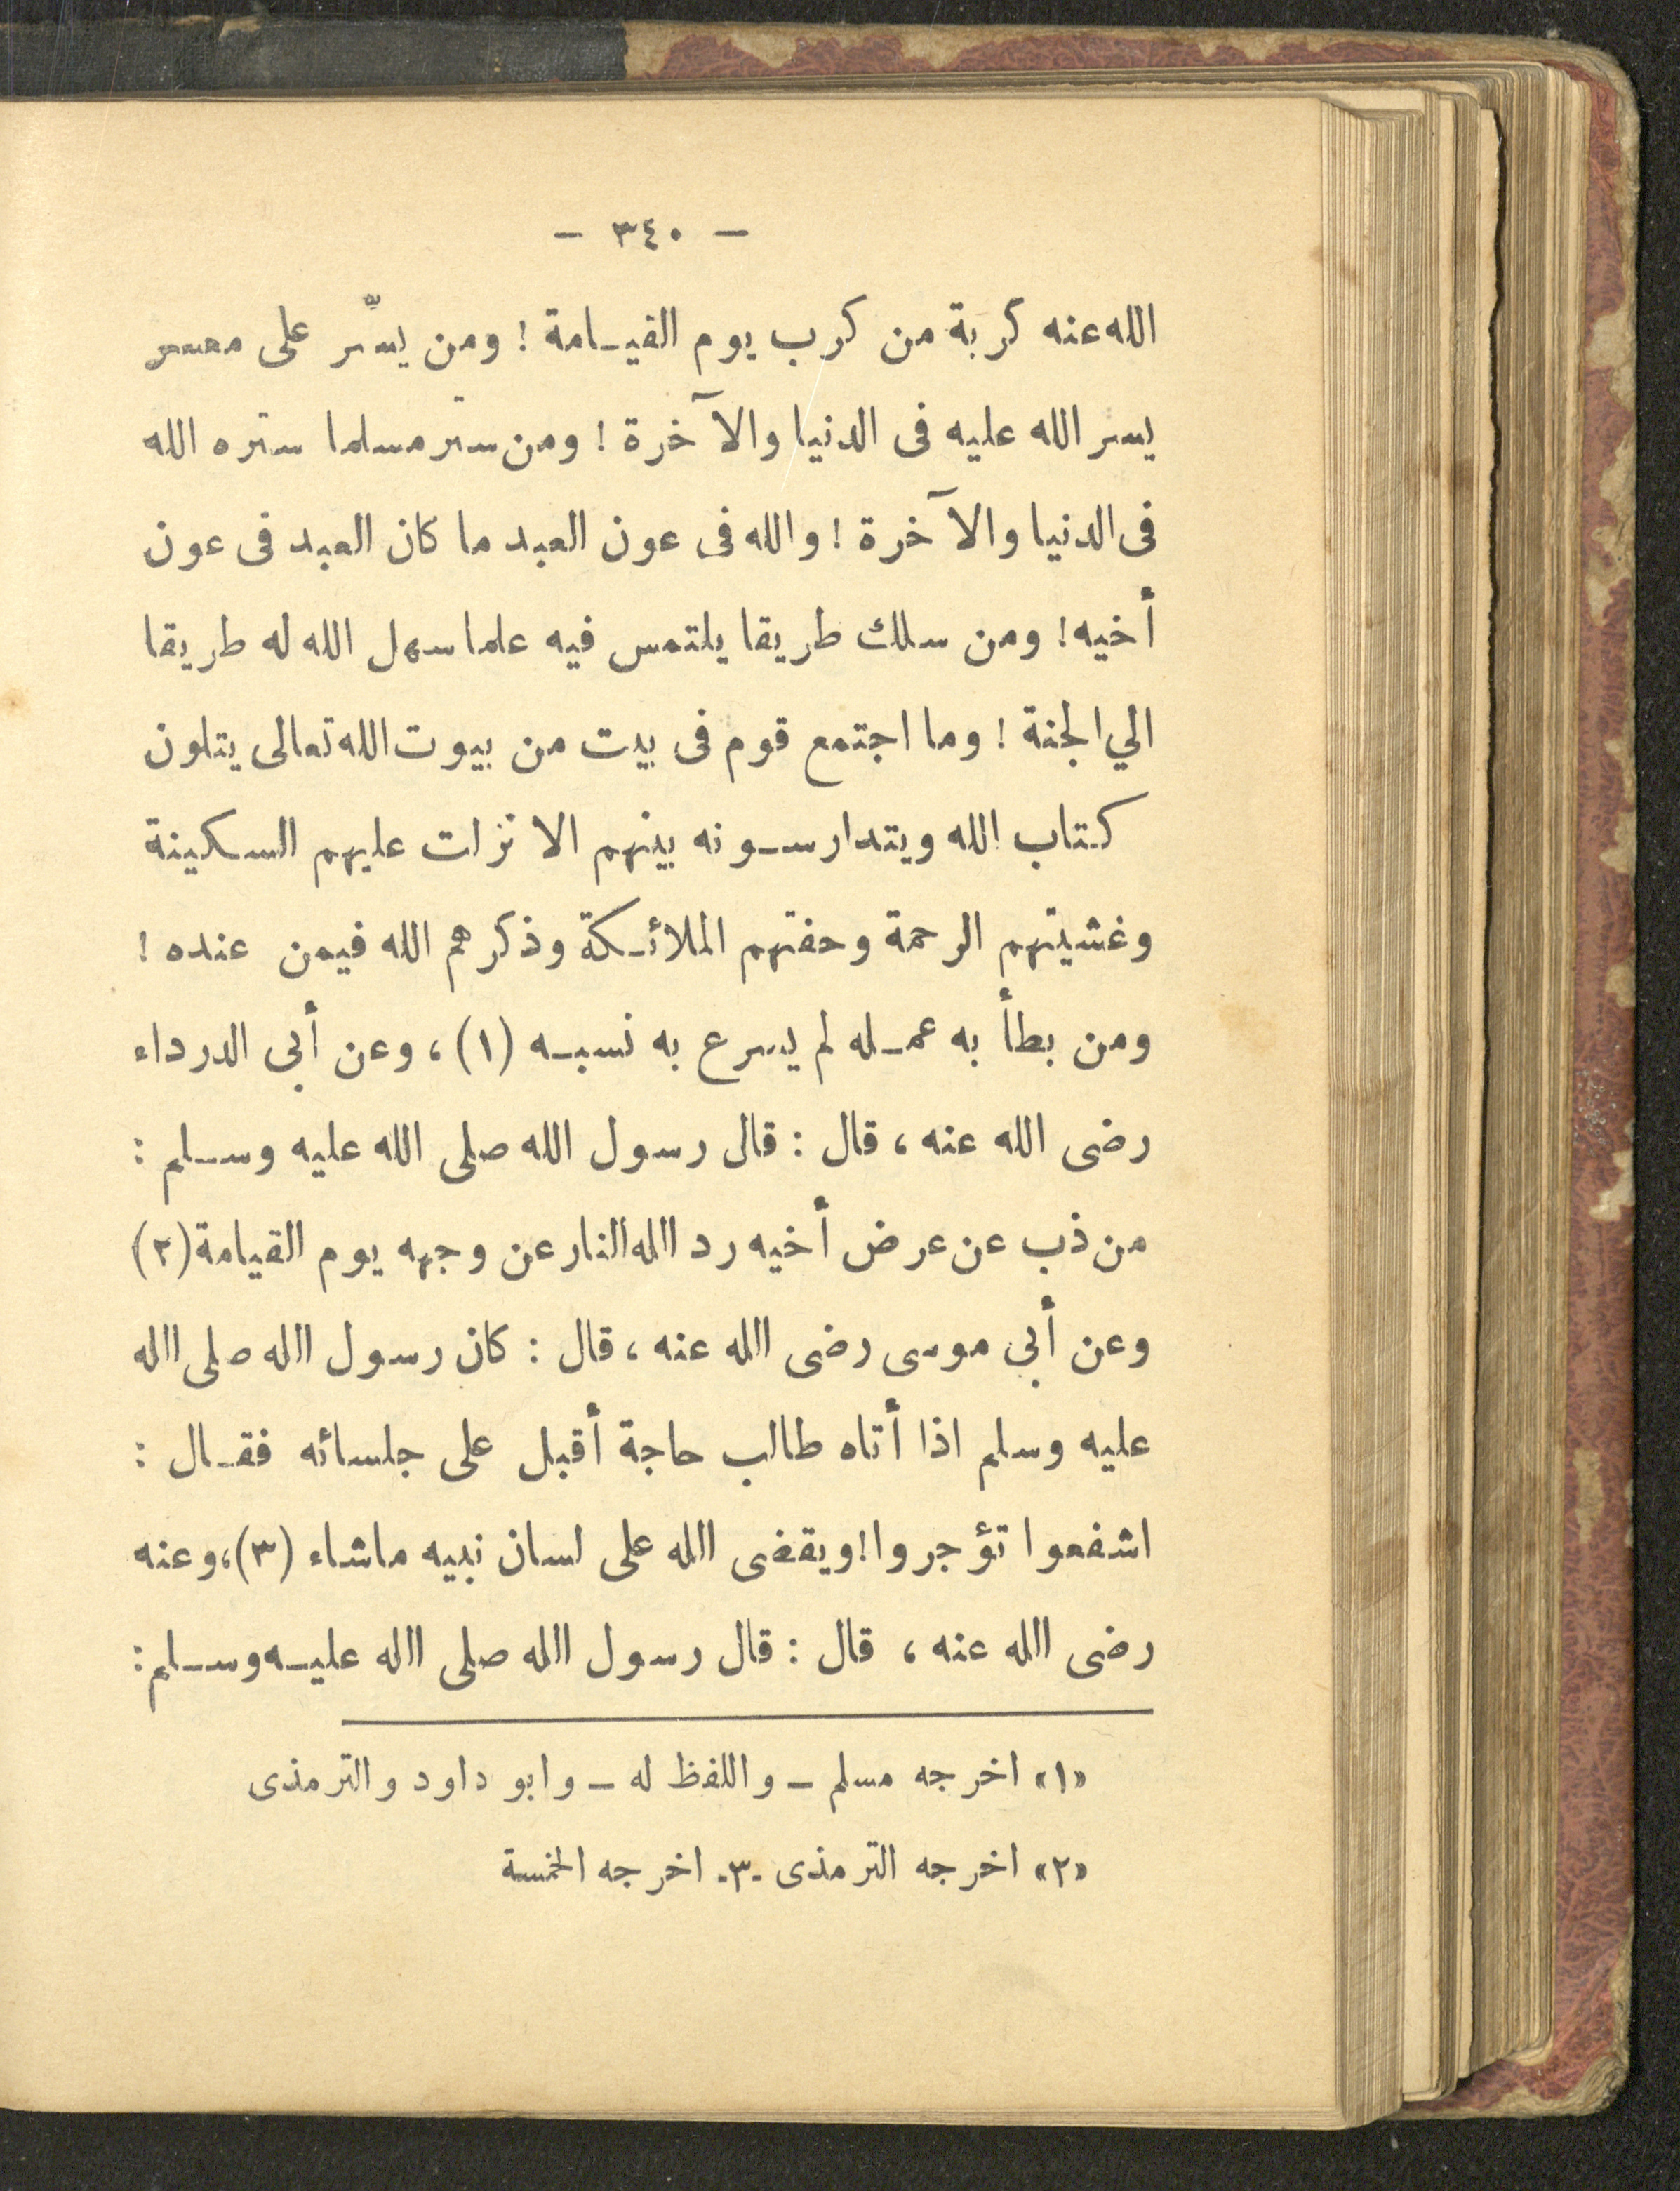 - ٣٤٠ -
الله عنه كربة من كرب يوم القيامة ! ومن يسّر على معسر
يسر الله عليه فى الدنيا والآخرة ! ومن ستر مسلما ستره الله
فى الدنيا والآخرة ! والله فى عون العبد ما كان العبد فى عون
أخيه ! ومن سلك طريقا يلتمس فيه علما سهل الله له طريقا
الي الجنة ! وما اجتمع قوم فى بيت من بيوت الله تعالى يتلون
كتاب الله ويتدارسونه بينهم الا نزلت عليهم السكينة
وغشيتهم الرحمة وحفتهم الملائكة وذكرهم الله فيمن عنده !
ومن بطأ به عمله لم يسرع به نسبه (١) ، وعن أبى الدرداء
رضى الله عنه ، قال : قال رسول الله صلى الله عليه وسلم :
من ذب عن عرض أخيه رد الله النار عن وجهه يوم القيامة (٢)
وعن أبي موسى رضى الله عنه ، قال : كان رسول الله صلى الله
عليه وسلم اذا أتاه طالب حاجة أقبل على جلسائه فقال :
اشفعوا تؤجروا ! ويقضى الله على لسان نبيه ماشاء (٣) ، وعنه
رضى الله عنه ، قال : قال رسول الله صلى الله عليه وسلم :
«١» اخرجه مسلم - واللفظ له - وابو داود والترمذى
«٢» اخرجه الترمذى -٣- اخرجه الخمسة